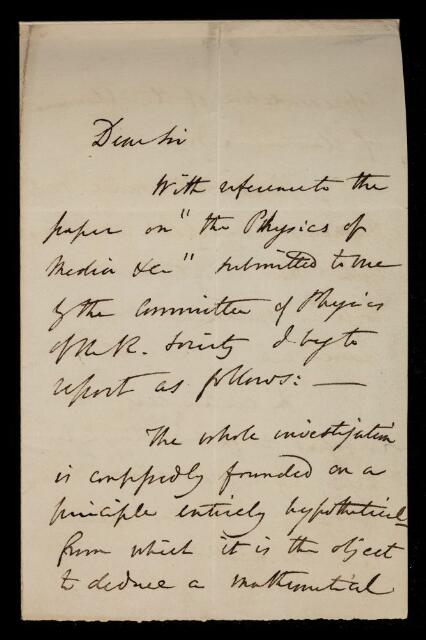 Dear Sir
With reference to the
paper on "the Physics of
Media &c" submitted to me
by the Committee of Physics
of the R. Society I beg to
report as follows: —
The whole investigation
is confessedly founded on a
principle entirely hypothetical
from which it is the object
to deduce a mathematical